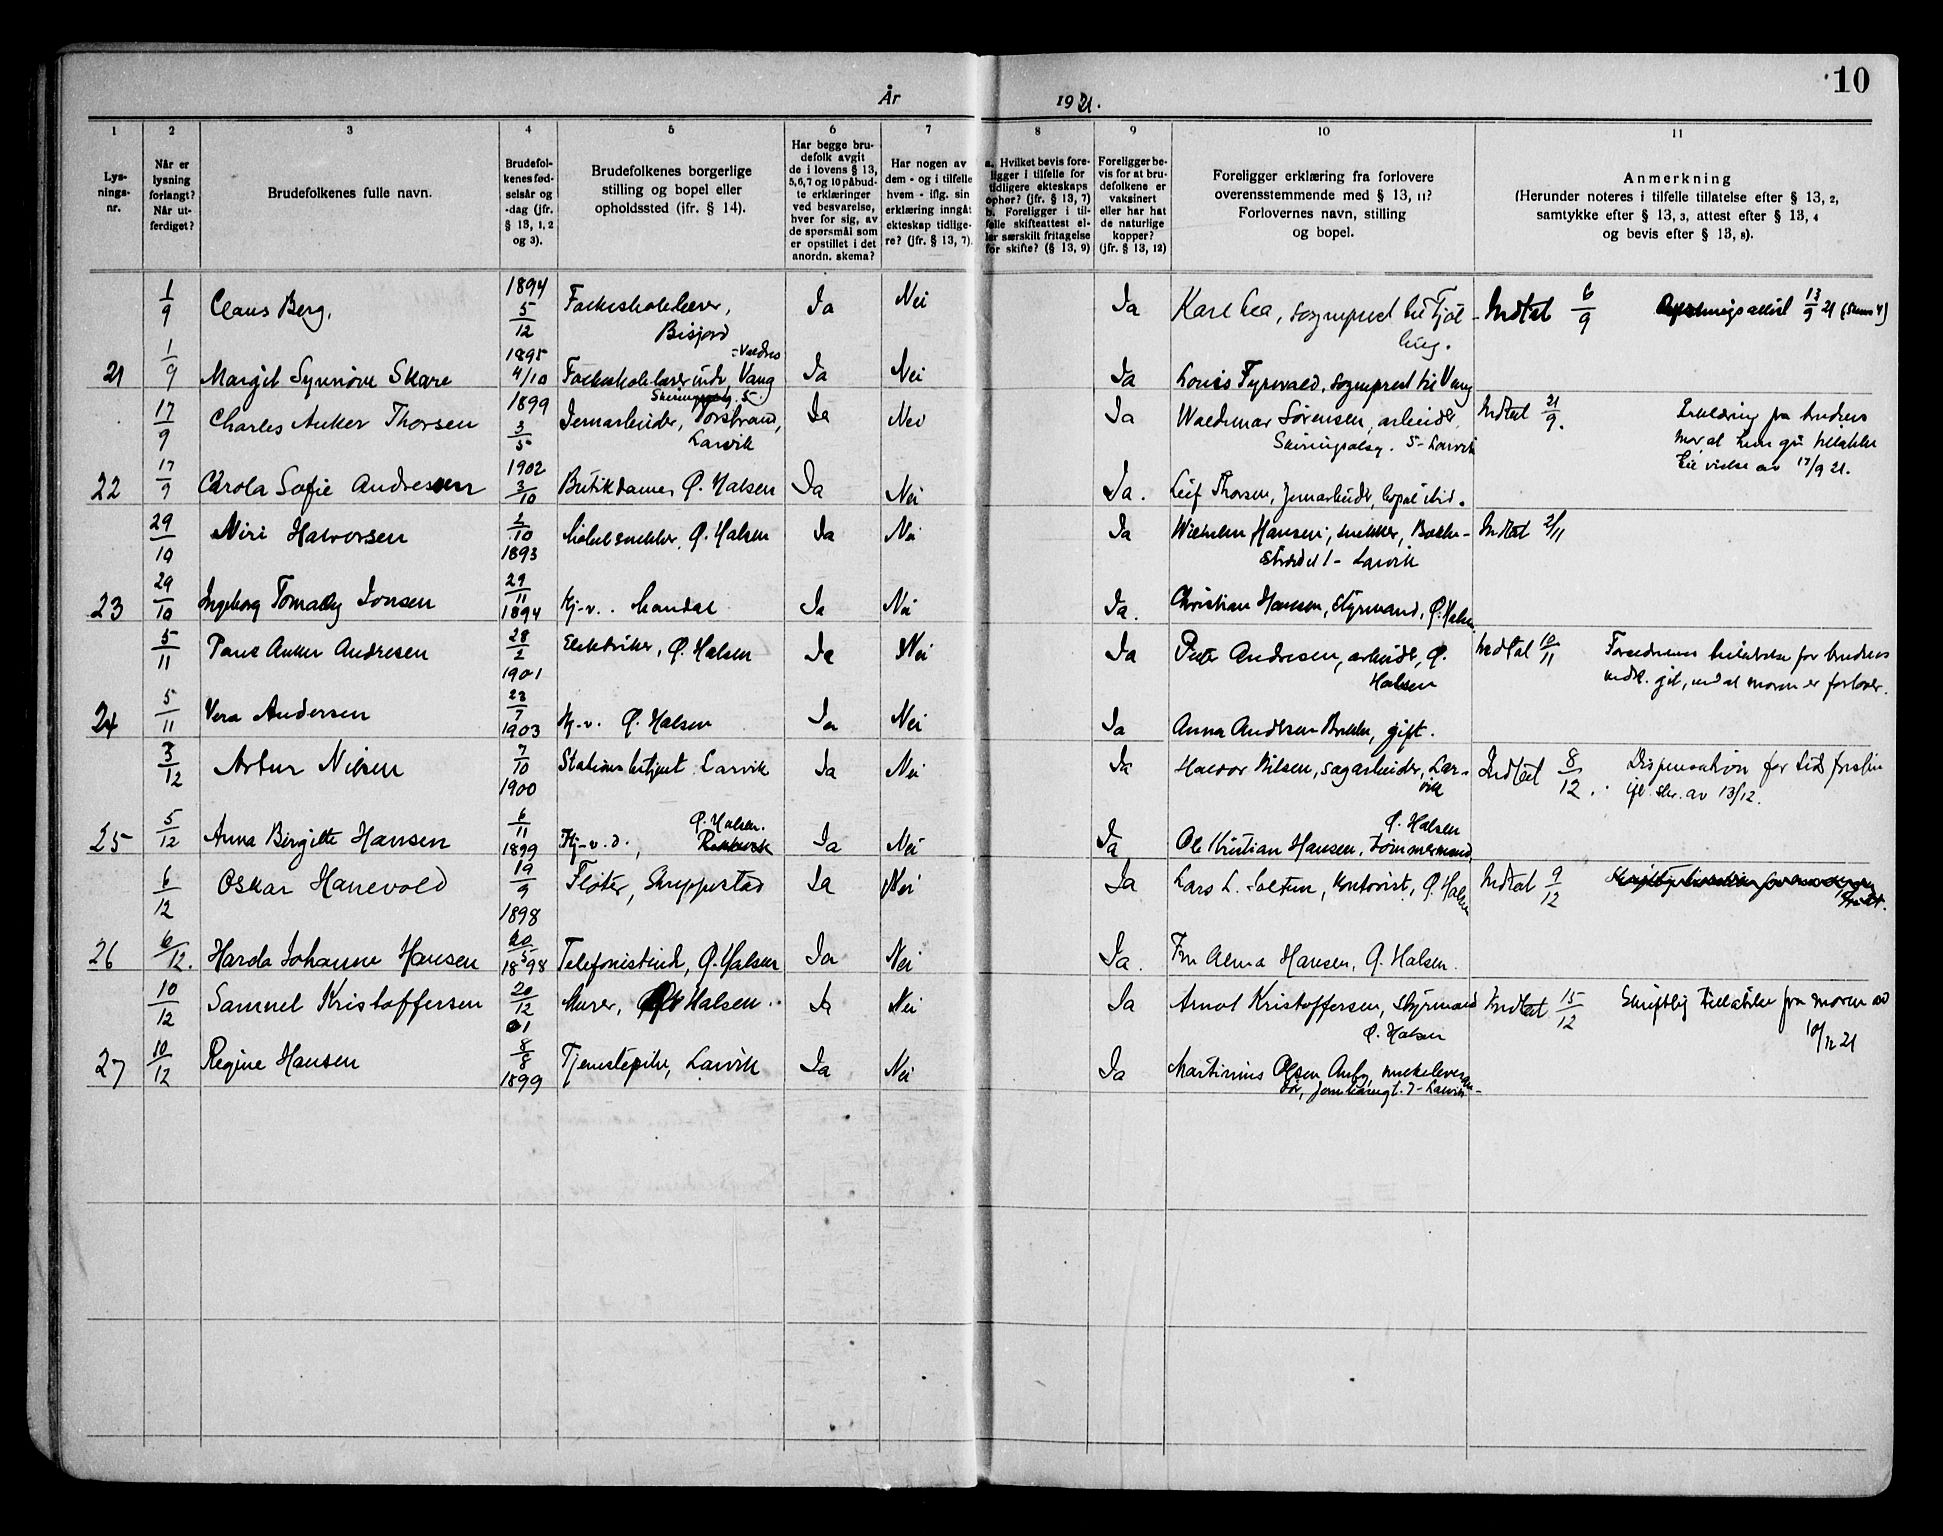 10
År 1921.
1 2 3 4 5 6 7 8 9 10 11
Lys-
nings-
nr.
Når er
lysning
forlangt?
Når ut-
ferdiget?
Brudefolkenes fulle navn.
Brudefol-
kenes fød-
selsår og
-dag (jfr.
§ 13, 1, 2
og 3).
Brudefolkenes borgerlige
stilling og bopel eller
opholdssted (jfr. § 14).
Har begge bru-
defolk avgit
de i lovens § 13,
5, 6, 7 og 10 påbud-
te erklæringer
ved besvarelse,
hver for sig, av
de spørsmål som
er opstillet i det
anordn. skema?
Har nogen av
dem - og i tilfelle
hvem - iflg. sin
erklæring inngåt
ekteskap tidlige-
re? (jfr. § 13, 7).
a. Hvilket bevis fore-
ligger i tilfelle for
tidligere ekteskaps
ophør? (jfr. § 13, 7)
b. Foreligger i til-
felle skifteattest el-
ler særskilt fritagelse
for skifte? (§ 13, 9)
Foreligger be-
vis for at bru-
defolkene er
vaksinert
eller har hat
de naturlige
kopper?
(jfr. § 13, 12)
Foreligger erklæring fra forlovere
overensstemmende med § 13, 11?
Forlovernes navn, stilling
og bopel.
Anmerkning
(Herunder noteres i tilfelle tillatelse efter § 13, 2,
samtykke efter § 13, 3, attest efter § 13, 4
og bevis efter § 13, 8).
1/9 Claus Berg, 1894 5/12 Folkeskolelærer, Ja Nei Ja Karl sogneprest til Tjøl- Indtat 6/9 13/9 21
ling.
21 1/9 Margit Synnøve Skare 1895 4/10 Folkeskolelærerinde, Vang Ja Nei Ja Louis sogneprest til Vang
-Valdres
17/9 Charles Anker Thorsen 1899 3/5 Jernarbeider, Torstrand, Ja Nei Ja Waldemar Sørensen, arbeider, Indtat 21/9. Erklæring fra brudens
Larvik Skiringsalsg. 5 - Larvik mor at hun gir tillatelse
til vielse av 17/9 21.
22 17/9 Carola Sofie Andresen 1902 3/10 Butikdame, Ø. Halsen Ja Nei Ja. Leif Thorsen, Jernarbeider,
29/10 Halvorsen /10 1893 Møbelsnekker, Ø. Halsen Ja Nei Ja Wilhelm Hansen, snekker, Bøkke- Indtat 2/11
strædet 1 - Larvik
23 29/10 Ingeborg Jonsen 29/11 1894 Hj-v. Mandal Ja Nei Ja. Christian Hansen, styrmand, Ø. Halsen
5/11 Paul Anker Andresen 28/2 1901 Elektriker, Ø. Halsen Ja Nei Ja Peter Andresen, arbeider, Ø. Indtat 10/11 Forældrenes tillatelse for brudens
Halsen vedk. git, ved at moren er forlover.
24 5/11 Vera Andersen 23/7 1903 Hj-v. Ø. Halsen Ja Nei Ja Anna Andersen gift.
3/12 Artur Nilsen 7/10 1900 Stationsbetjent Larvik Ja Nei Ja Halvor Nilsen, sagarbeider, Lar- Indtat 8/12. Dispensation for
vik av 13/12.
25 5/12 Anna Birgitte Hansen 6/11 1899 Hj-v.d., Ø. Halsen. Ja Nei Ja Ole Kristian Hansen, Tømmermand, Ø. Halsen
6/12 Oskar Hanevold 19/9 1898 Fløter, Ja Nei Ja Lars L. kontorist, Ø. Halsen Indtat 9/12
26 6/12. Harda Johanne Hansen 20/5 1898 Telefonistinde, Ø. Halsen Ja Nei Ja. Fru Alma Hansen, Ø. Halsen.
10/12 Samuel Kristoffersen 20/12 01 Murer, Halsen. Ja Nei Ja Arnol Kristoffersen, Styrmand Indtat 15/12 Skriftlig tillatelse fra moren av
Ø. Halsen 10/12 21
27 10/12 Regine Hansen 8/8 1899 Tjenestepike, Larvik Ja Nei Ja Martinius Olsen
7 - Larvik -